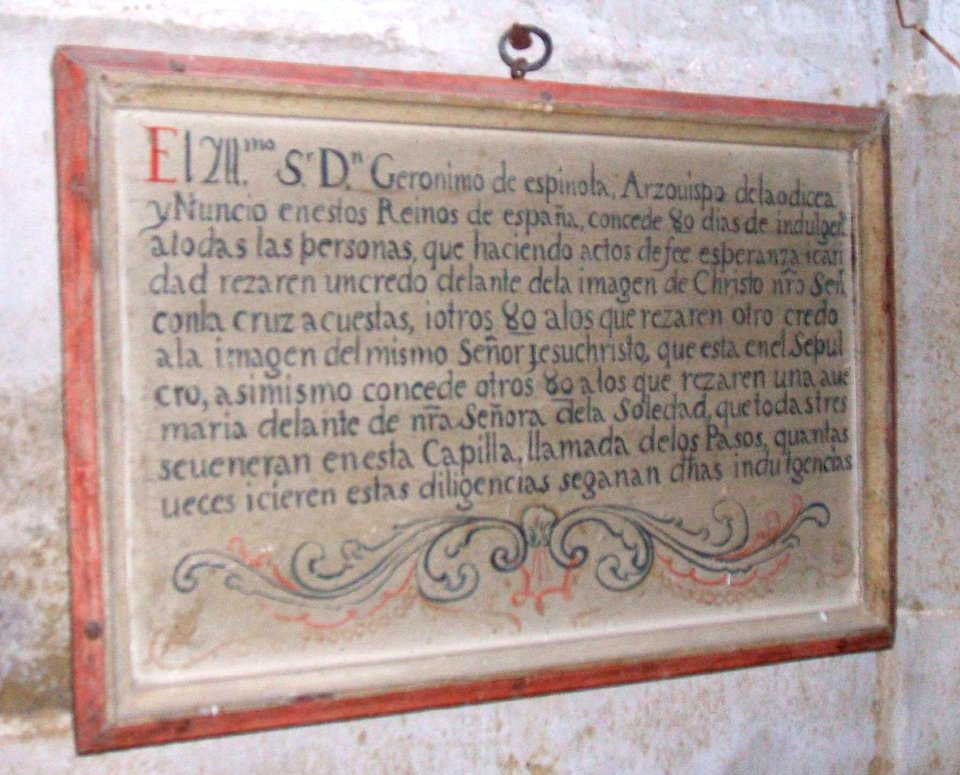 El Ill.mo S.r D.n Geronimo de espinola, Arzouispo delaodicea
y Nuncio enestos Reinos de españa, concede 80 dias de indulgen
atodas las personas, que haciendo actos defee esperanza icari
dad rezaren uncredo delante dela imagen de Christo nr̃o Señ
conla cruz acuestas, iotros 80 alos que rezaren otro credo
ala imagen del mismo Señor jesuchristo, que esta enel Sepul
cro, asimismo concede otros 80 alos que rezaren una aue
maria delante de nr̃a Señora dela Soledad, quetodas tres
seueneran enesta Capilla, llamada delos Pasos, quantas
ueces icieren estas diligencias seganan dhas indulgencias